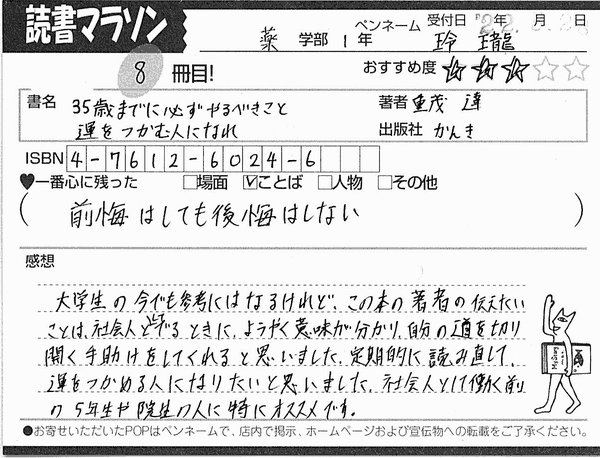 読書マラソン
薬 学部 1 年 ペンネーム 玲瓏 受付日 年 月 日
8 冊目! おすすめ度 ★★★☆☆
書名 35歳までに必ずやるべきこと 著者 重茂 達
運をつかむ人になれ 出版社 かんき
ISBN 4-7612-6024-6
♥一番心に残った □場面 ☑ことば □人物 □その他
(前悔はしても後悔はしない)
感想
大学生の今でも参考にはなるけれど、この本の著者の伝えたい
ことは、社会人としてでるときに、ようやく意味が分かり、自分の道を切り
開く手助けをしてくれると思いました。定期的に読み直して、
運をつかめる人になりたいと思いました。社会人として働く前
の5年生や院生の人に特にオススメです。
●お寄せいただいたPOPはペンネームで、店内で掲示、ホームページおよび宣伝物への転載をご了承ください。